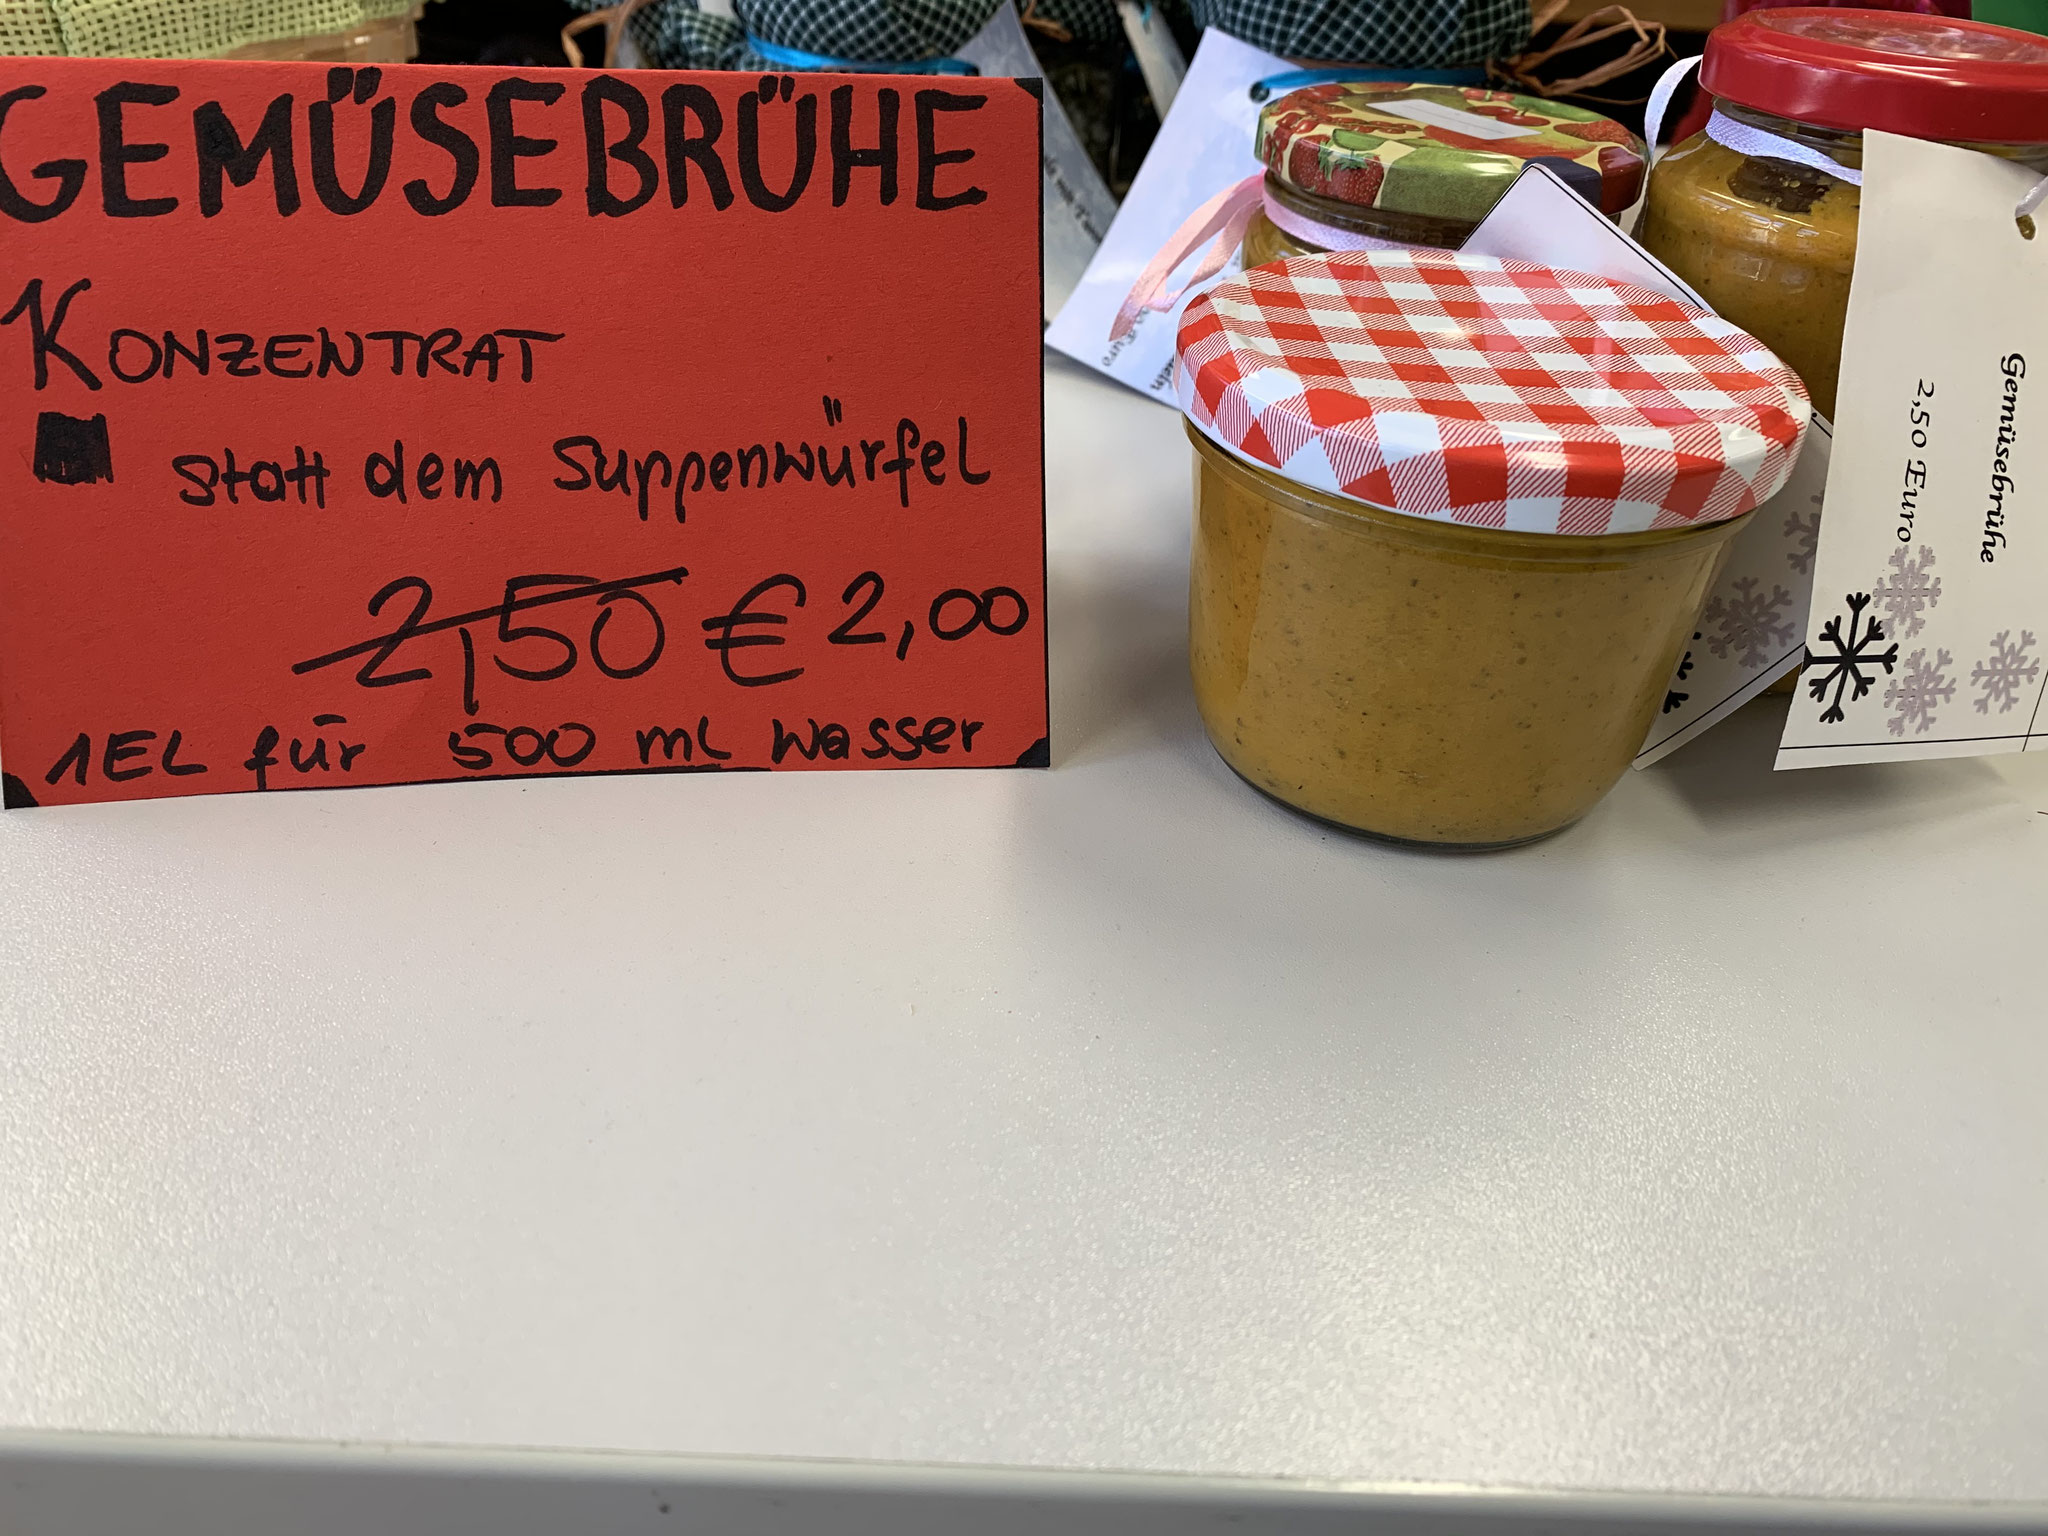 GEMÜSEBRÜHE
KONZENTRAT
statt dem Suppenwürfel
2,50 € 2,00
1EL für 500 ml Wasser
Gemüsebrühe
2,50 Euro